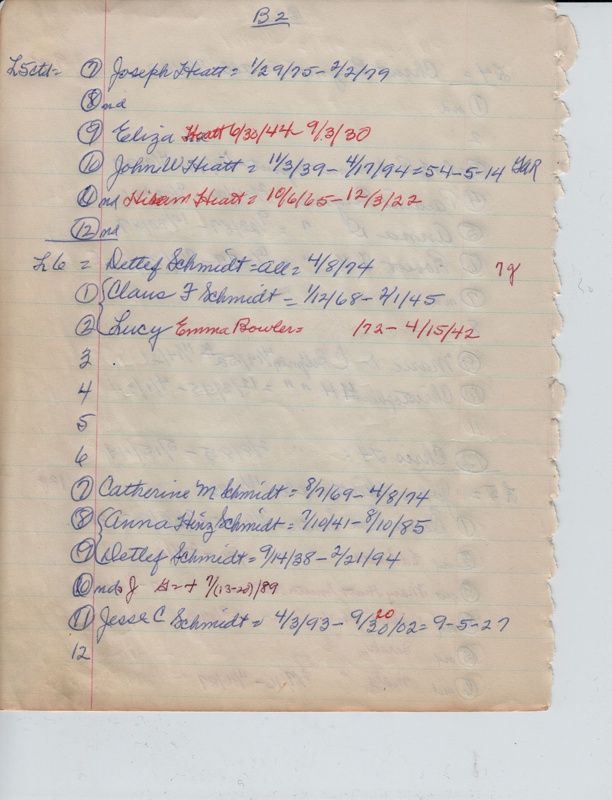 B2
L5ctd = 7 Joseph Hiatt = 1/29/75 - 2/2/79
8 nd
9 Eliza Hiatt 6/30/44 - 9/3/30
10 John W Hiatt = 11/3/39 - 4/17/94 = 54-5-14 GAR
11 nd Hiram Hiatt = 10/6/65 - 12/3/22
12 nd
L6 = Detlef Schmidt = all = 4/8/74 7g
1 { Claus F Schmidt = 1/12/68 - 2/1/45
2 { Lucy Emma Bowler = /72 - 4/15/42
3
4
5
6
7 Catherine M Schmidt = 8/7/69 - 4/8/74
8 { Anna Hinz Schmidt = 7/10/41 - 8/10/85
9 { Detlef Schmidt = 9/14/38 - 2/21/94
10 nd 7/(13-20)/89
11 Jesse C Schmidt = 4/3/93 - 9/30/02 = 9-5-27
20
12